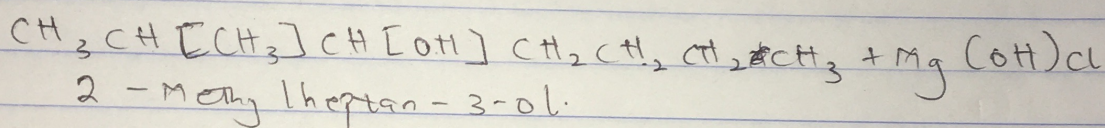 CH₃CH[CH₃]CH[OH]CH₂CH₂CH₂CH₃ + Mg(OH)Cl
2-Methylheptan-3-ol.